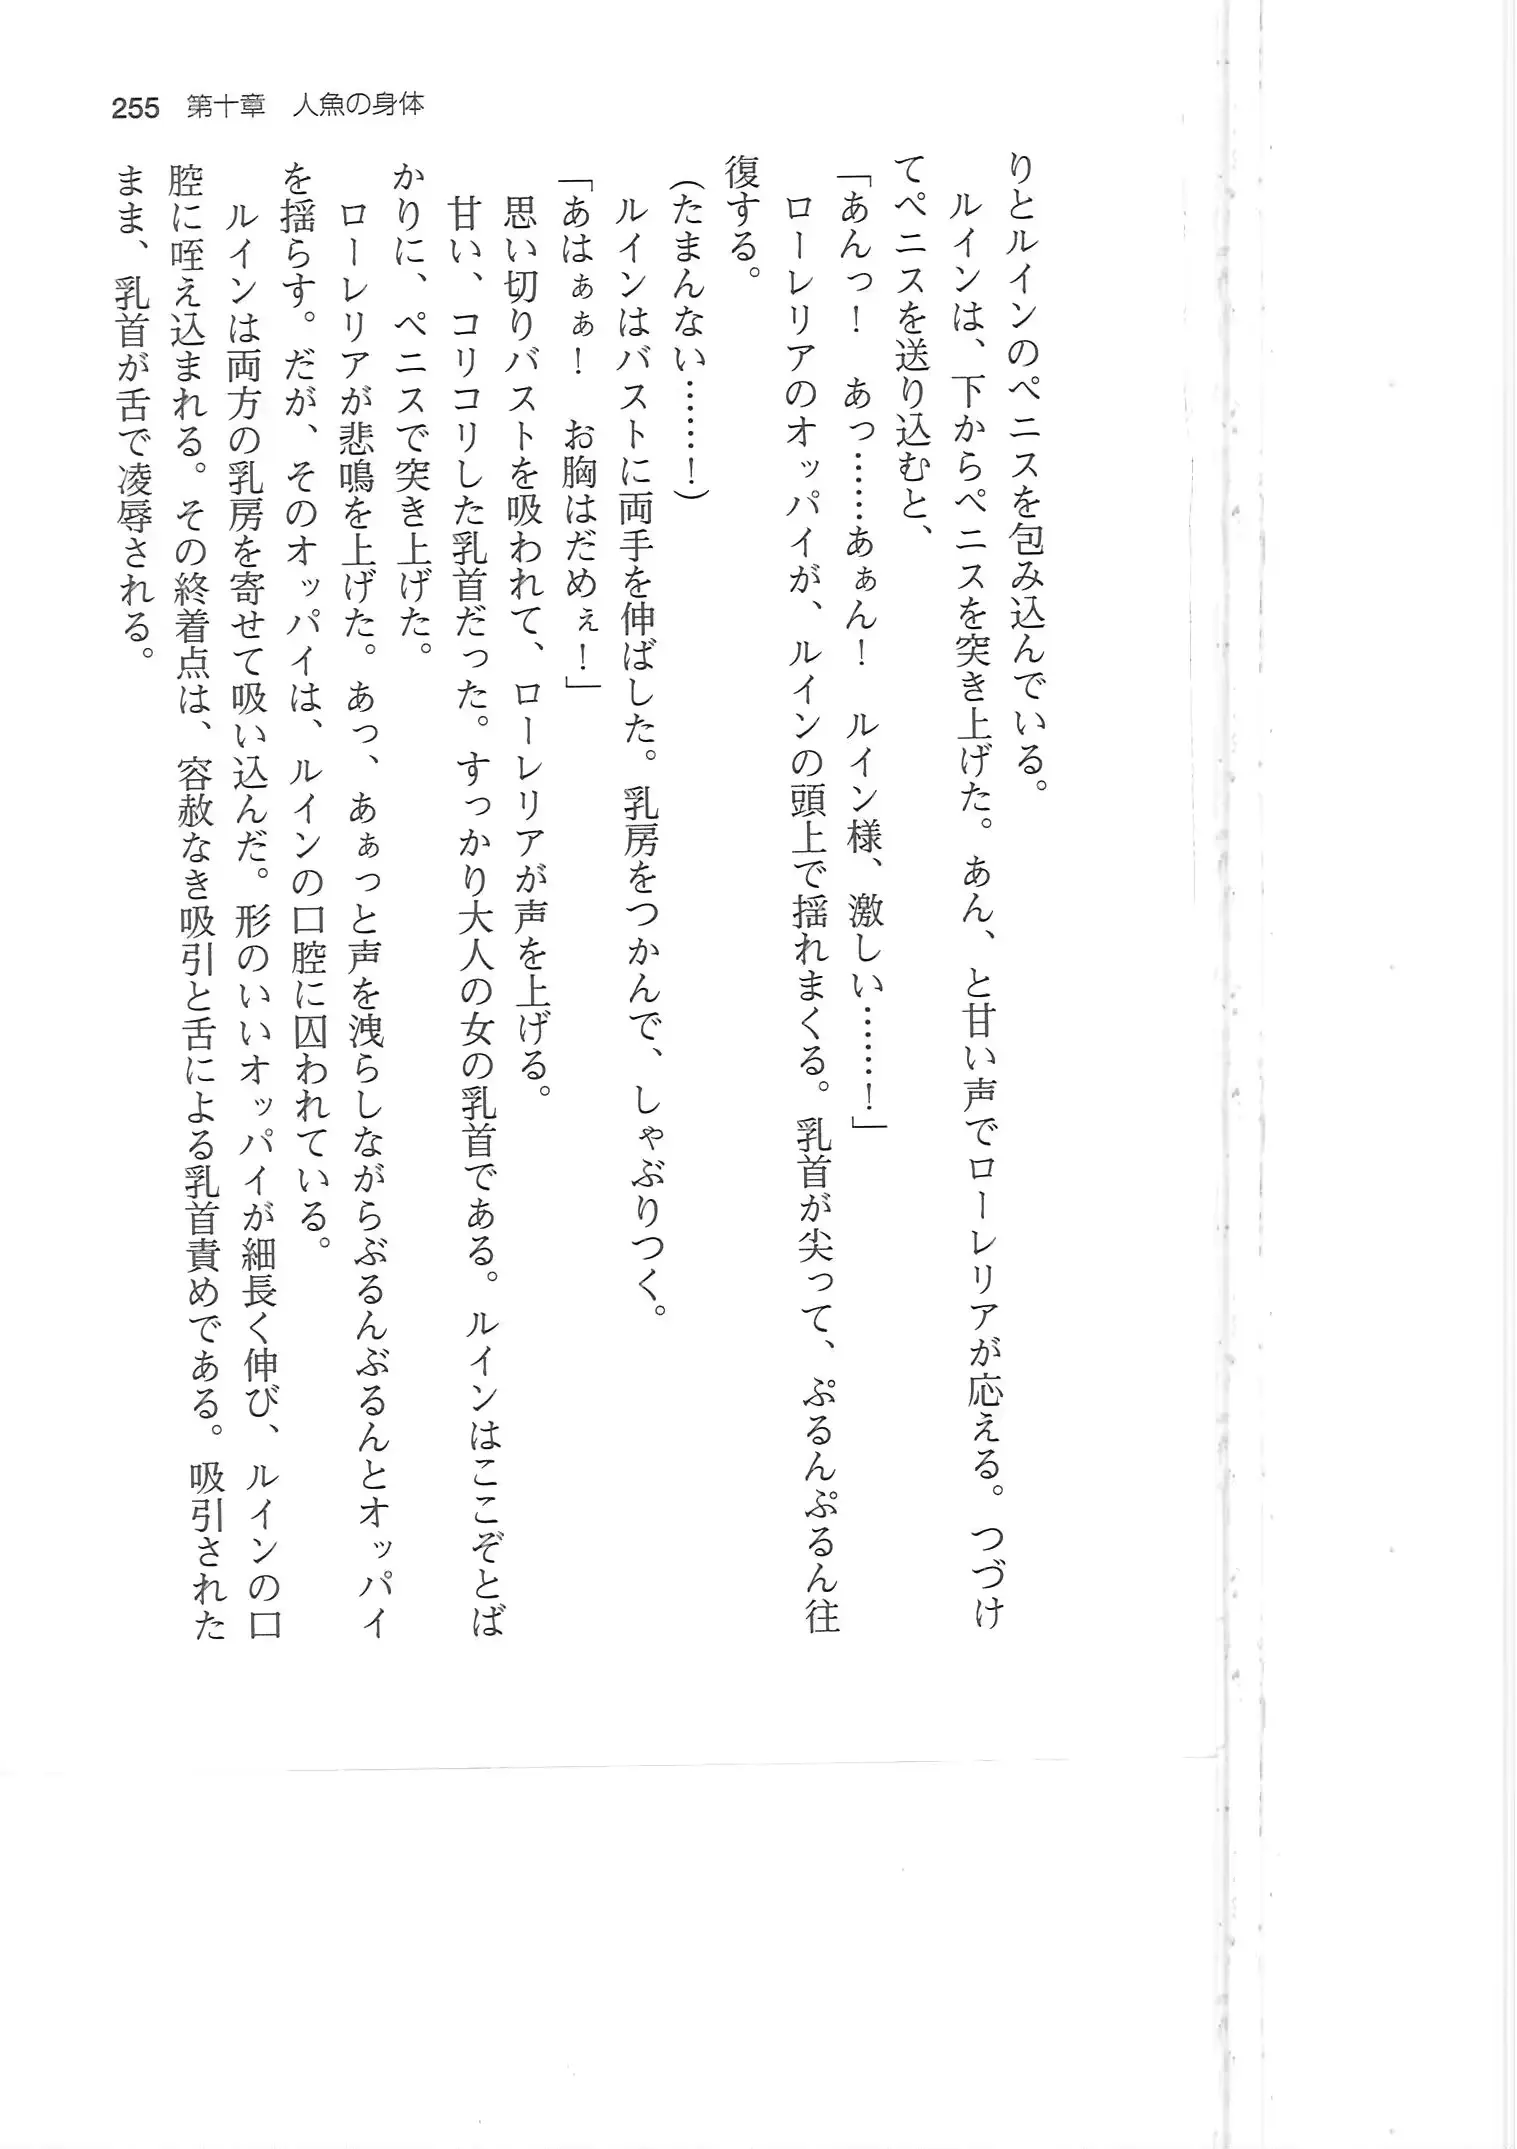 255　第十章　人魚の身体
りとルインのペニスを包み込んでいる。
ルインは、下からペニスを突き上げた。あん、と甘い声でローレリアが応える。つづけ
てペニスを送り込むと、
「あんっ！　あっ……あぁん！　ルイン様、激しい……！」
ローレリアのオッパイが、ルインの頭上で揺れまくる。乳首が尖って、ぷるんぷるん往
復する。
（たまんない……！）
ルインはバストに両手を伸ばした。乳房をつかんで、しゃぶりつく。
「あはぁぁ！　お胸はだめぇ！」
思い切りバストを吸われて、ローレリアが声を上げる。
甘い、コリコリした乳首だった。すっかり大人の女の乳首である。ルインはここぞとば
かりに、ペニスで突き上げた。
ローレリアが悲鳴を上げた。あっ、あぁっと声を洩らしながらぶるんぶるんとオッパイ
を揺らす。だが、そのオッパイは、ルインの口腔に囚われている。
ルインは両方の乳房を寄せて吸い込んだ。形のいいオッパイが細長く伸び、ルインの口
腔に咥え込まれる。その終着点は、容赦なき吸引と舌による乳首責めである。吸引された
まま、乳首が舌で凌辱される。